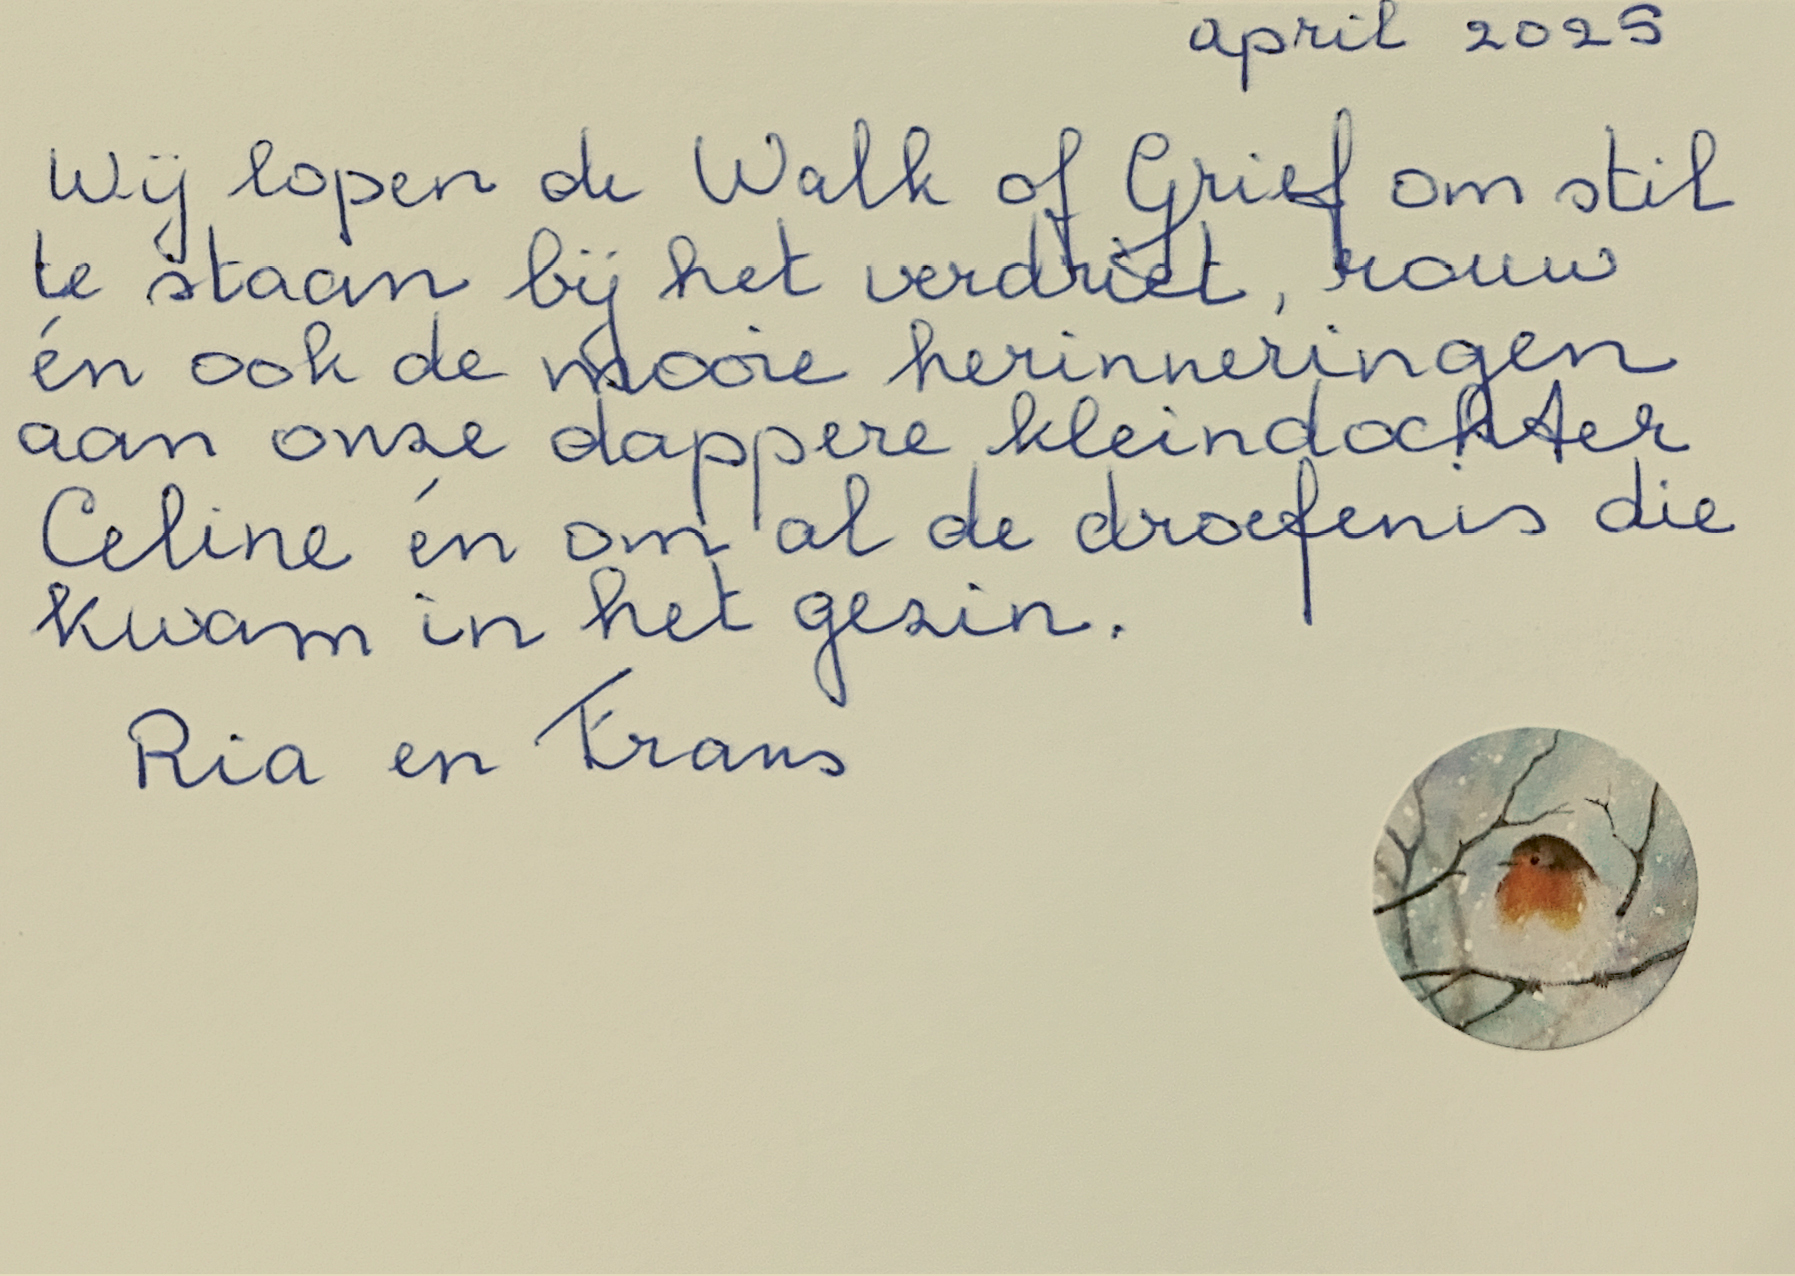 april 2025
Wij lopen de Walk of Grief om stil
te staan bij het verdriet, rouw
én ook de mooie herinneringen
aan onze dappere kleindochter
Celine én om al de droefenis die
kwam in het gezin.
Ria en Frans